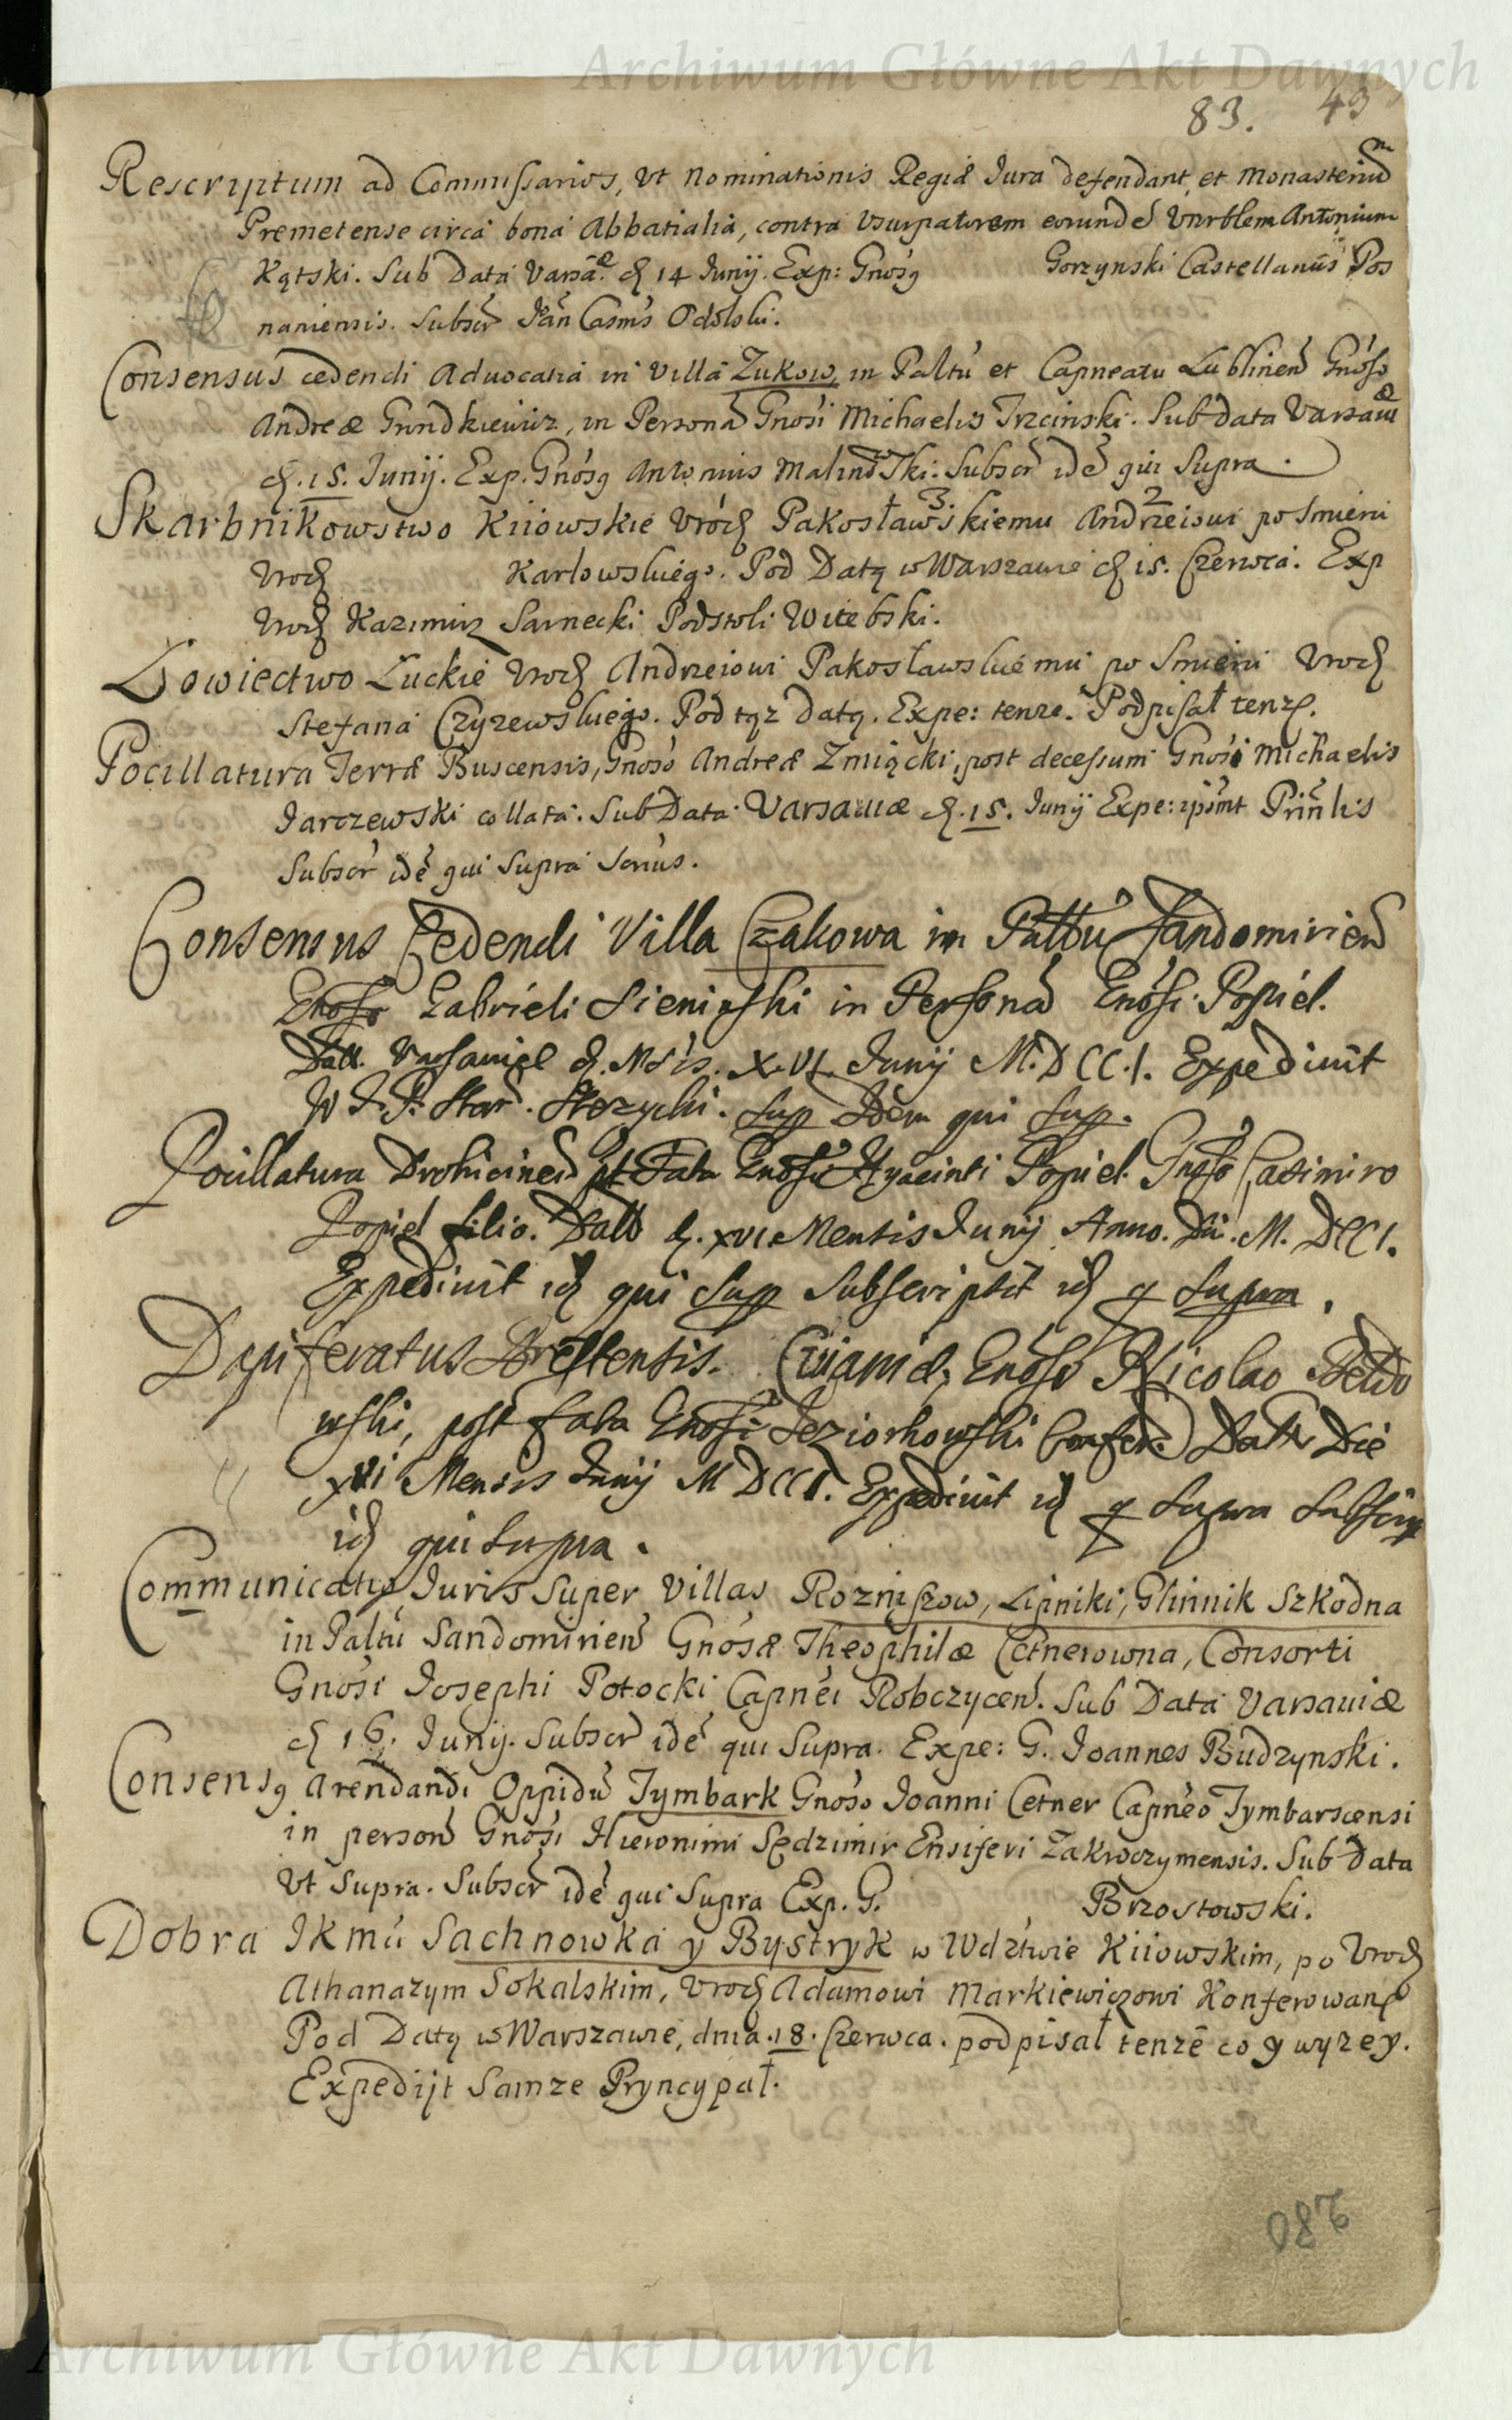 Archiwum Główne Akt Dawnych
83. 43
Rescriptum ad Commissarios, Vt Nominationis Regiæ Iura defendant, et Monasteriũ
Premetense circa bona Abbatialia, contra Vsurpatorem eorundē Vnrblem Antonium
Kątski. Sub Data Varsã. d. 14 Iunij. Exp: Gnosg Gorzynski Castellanus Pos
naniensis. Subscr Ian Casms Odolski.
Consensus cedendi Aduocatia in Villa Zukow, in Paltu et Capneatu Lublinen Gnoso
Andreæ Gundkiewicz, in Persona Gnosi Michaelis Trzcinski. Sub Data Varsaviæ
d. 15. Iunij. Exp. Gnosg Antonius Malinowski. Subscr idē qui Supra.
Skarbnikowstwo Kiiowskie Vrod Pakosławskiemu 3. Andrzeiowi 2 po Smierci
Vrod Karlowskiego. Pod Datą w Warszawie d 15. Czerwca. Exp
Vrod Kazimirz Sarnecki Podstoli Witebski.
Łowiectwo Łuckie Vrod Andrzeiowi Pakosławskiemu po Smierci Vrod
Stefana Czyzewskiego. Pod tąz datą. Expe: tenze. Podpisał tenze.
Pocillatura Terræ Buscensis, Gnoso Andreæ Zmiącki, post decessum Gnosi Michaelis
Jarczewski collata. Sub Data Varsaviæ d. 15. Iunij Expe: ipsmt Prinlis
Subscr idē qui Supra Scrius.
Consensus Cedendi Villa Czakowa in Paltu Sandomirien
Gnoso Gabrieli Sieninski in Persona Gnosi Popiel.
Datt. Varsaviæ d. Msis. X.VI. Junij M.DCC.I. Expedivit
W J. P. Star. Stozycki. Sup Idem qui Sup.
Pocillatura Drohicinen pt Fata Gnosi Hyacinti Popiel Gnoso Casimiro
Popiel filio. Datt d. XVI Mensis Junij Anno. Dni. M. DCCI.
Expedivit id qui Sup Subscripsit id q Supra.
Dapiferatus Brestensis. Cuiaviæ, Gnoso Nicolao Dewo
wski, post fata Gnosi Jeziorkowski Confert. Datt Die
XVI Mensis Junij MDCCI. Expedivit id q Supra Subscrip
id qui Supra.
Communicatio Iuris Super Villas Roznisow, Lipniki, Glinnik Szkodna
in Paltu Sandomirien Gnosæ Theophilæ Cetnerowna, Consorti
Gnosi Iosephi Potocki Capnei Robczycen. Sub Data Varsaviæ
d 16. Iunij. Subscr idē qui Supra. Expe: G. Ioannes Budzynski.
Consensg Arendandi Oppidu Tymbark Gnoso Ioanni Cetner Capneo Tymbarscensi
in person Gnosi Hieronimi Sędzimir Ensiferi Zakroczymensis. Sub Data
Vt Supra. Subscr idē qui Supra Exp. G. Brzostowski.
Dobra Ikmci Sachnowka y Bystryk w Wdztwie Kiiowskim, po Vrod
Athanazym Sokalskim, Vrod Adamowi Markiewiczowi Konferowane
Pod Datą w Warszawie, dnia. 18. Czerwca. podpisał tenze co y wyzey.
Expedijt Samze Pryncypał.
280
Archiwum Główne Akt Dawnych